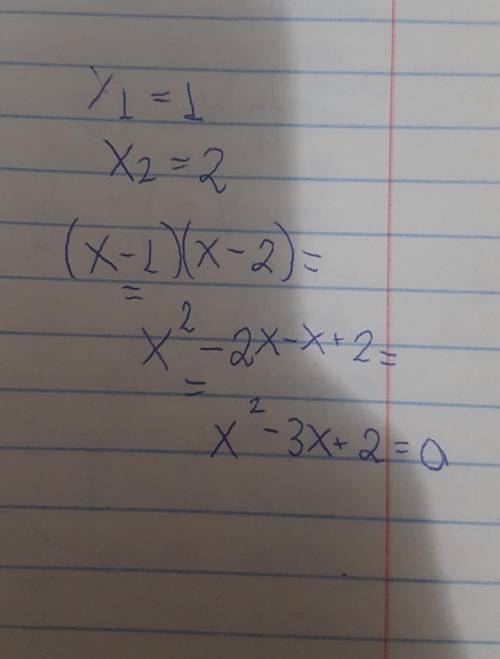 x₁ = 1
x₂ = 2
(x-1)(x-2) =
=
x² - 2x - x + 2 =
=
x² - 3x + 2 = 0